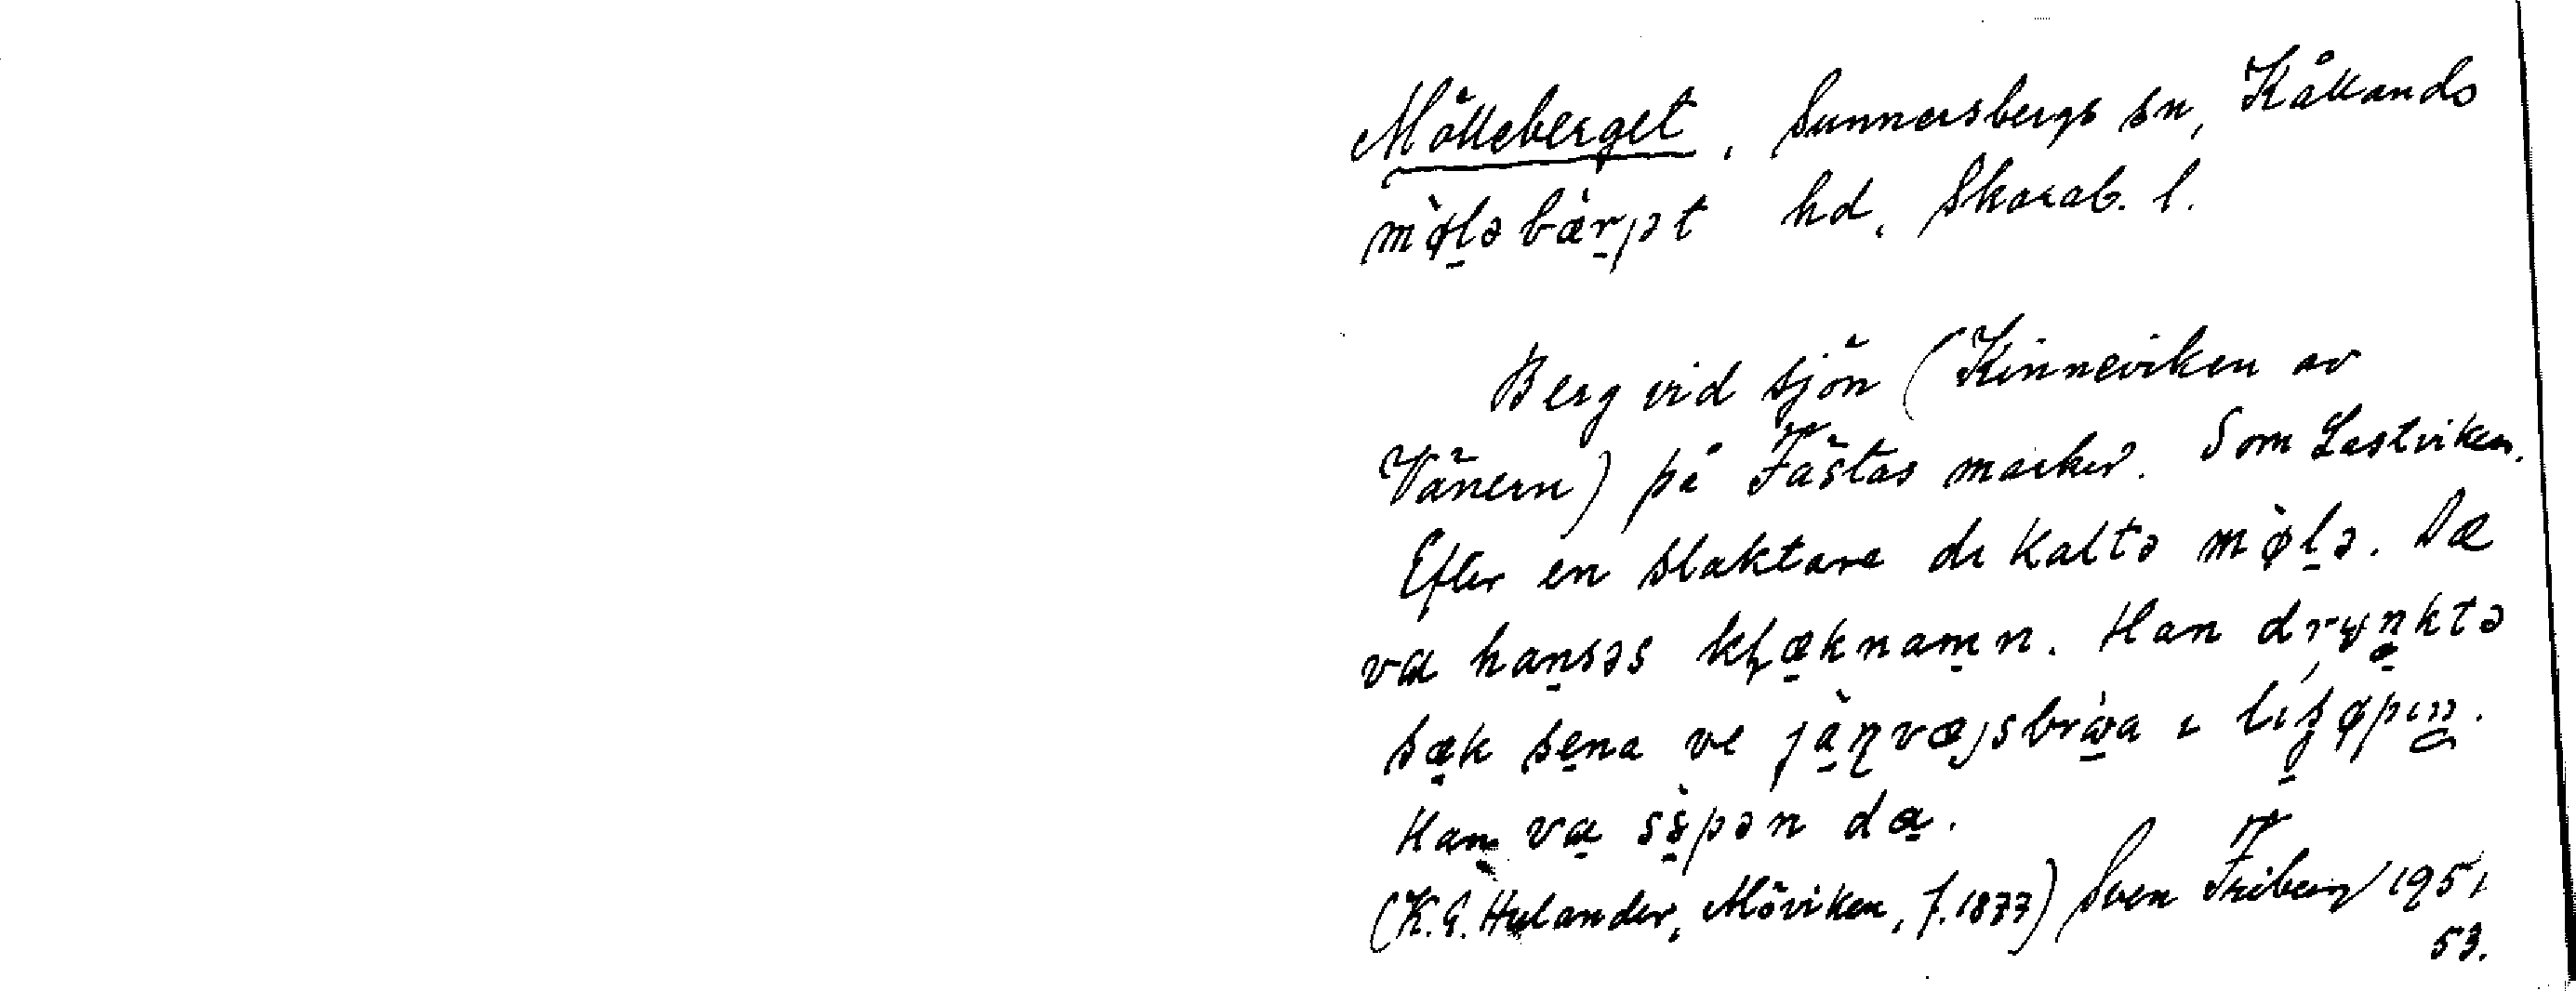 Mölleberget, Sunnersbergs sn, Kållands
mø̀lə bær̀jət hd, Skarab. l.
Berg vid sjön (Kinneviken av
Vänern) på Fästas marker. Som Lastviken.
Efter en slaktare di kaltə mø̀lə. Dæ
va hansəs klæknamn. Han dryŋktə
sæk sena ve jæ̀ɳvæjsbròa i líʂøpiŋ.
Han va sʉ̀pən da.
(K.G. Hulander, Möviken, f. 1877) Sven Friberg 1951
53.